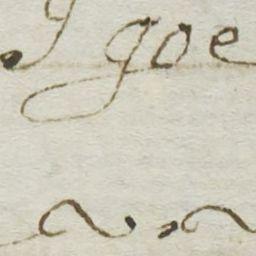 I goe